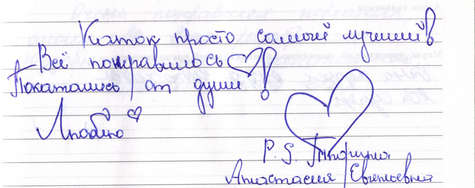 Каток просто самый лучший!
Всё понравилось!
Покатались от души!
Люблю
P.S.
Анастасия Евгеньевна